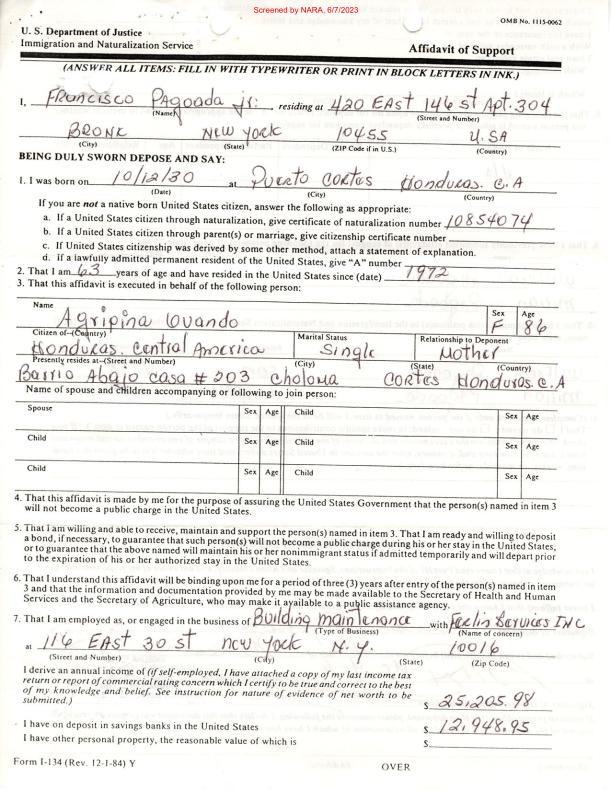 Screened by NARA, 6/7/2023
OMB No. 1115-0062
U. S. Department of Justice
Immigration and Naturalization Service
Affidavit of Support
(ANSWER ALL ITEMS: FILL IN WITH TYPEWRITER OR PRINT IN BLOCK LETTERS IN INK.)
I, Francisco Pagoada Jr. residing at 420 EAst 146 st Apt. 304
(Name) (Street and Number)
BRONX NEW YORK 10455 U.SA
(City) (State) (ZIP Code if in U.S.) (Country)
BEING DULY SWORN DEPOSE AND SAY:
1. I was born on 10/12/30 at Puerto Cortes Honduras. C.A
(Date) (City) (Country)
If you are not a native born United States citizen, answer the following as appropriate:
a. If a United States citizen through naturalization, give certificate of naturalization number 10854074
b. If a United States citizen through parent(s) or marriage, give citizenship certificate number
c. If United States citizenship was derived by some other method, attach a statement of explanation.
d. If a lawfully admitted permanent resident of the United States, give "A" number
2. That I am 63 years of age and have resided in the United States since (date) 1972
3. That this affidavit is executed in behalf of the following person:
Name Sex Age
Agripina Ovando F 86
Citizen of-(Country) Marital Status Relationship to Deponent
Honduras. Central America Single Mother
Presently resides at-(Street and Number) (City) (State) (Country)
Barrio Abajo casa # 203 Choloma Cortes Honduras. C.A
Name of spouse and children accompanying or following to join person:
Spouse Sex Age Child Sex Age
Child Sex Age Child Sex Age
Child Sex Age Child Sex Age
4. That this affidavit is made by me for the purpose of assuring the United States Government that the person(s) named in item 3
will not become a public charge in the United States.
5. That I am willing and able to receive, maintain and support the person(s) named in item 3. That I am ready and willing to deposit
a bond, if necessary, to guarantee that such person(s) will not become a public charge during his or her stay in the United States,
or to guarantee that the above named will maintain his or her nonimmigrant status if admitted temporarily and will depart prior
to the expiration of his or her authorized stay in the United States.
6. That I understand this affidavit will be binding upon me for a period of three (3) years after entry of the person(s) named in item
3 and that the information and documentation provided by me may be made available to the Secretary of Health and Human
Services and the Secretary of Agriculture, who may make it available to a public assistance agency.
7. That I am employed as, or engaged in the business of Building maintenance with Ferlin Services INC
(Type of Business) (Name of concern)
at 116 EAST 30 st new york N.Y. 10016
(Street and Number) (City) (State) (Zip Code)
I derive an annual income of (if self-employed, I have attached a copy of my last income tax
return or report of commercial rating concern which I certify to be true and correct to the best
of my knowledge and belief. See instruction for nature of evidence of net worth to be
submitted.) $ 25,205.98
I have on deposit in savings banks in the United States $ 12,948.95
I have other personal property, the reasonable value of which is $
Form I-134 (Rev. 12-1-84) Y OVER